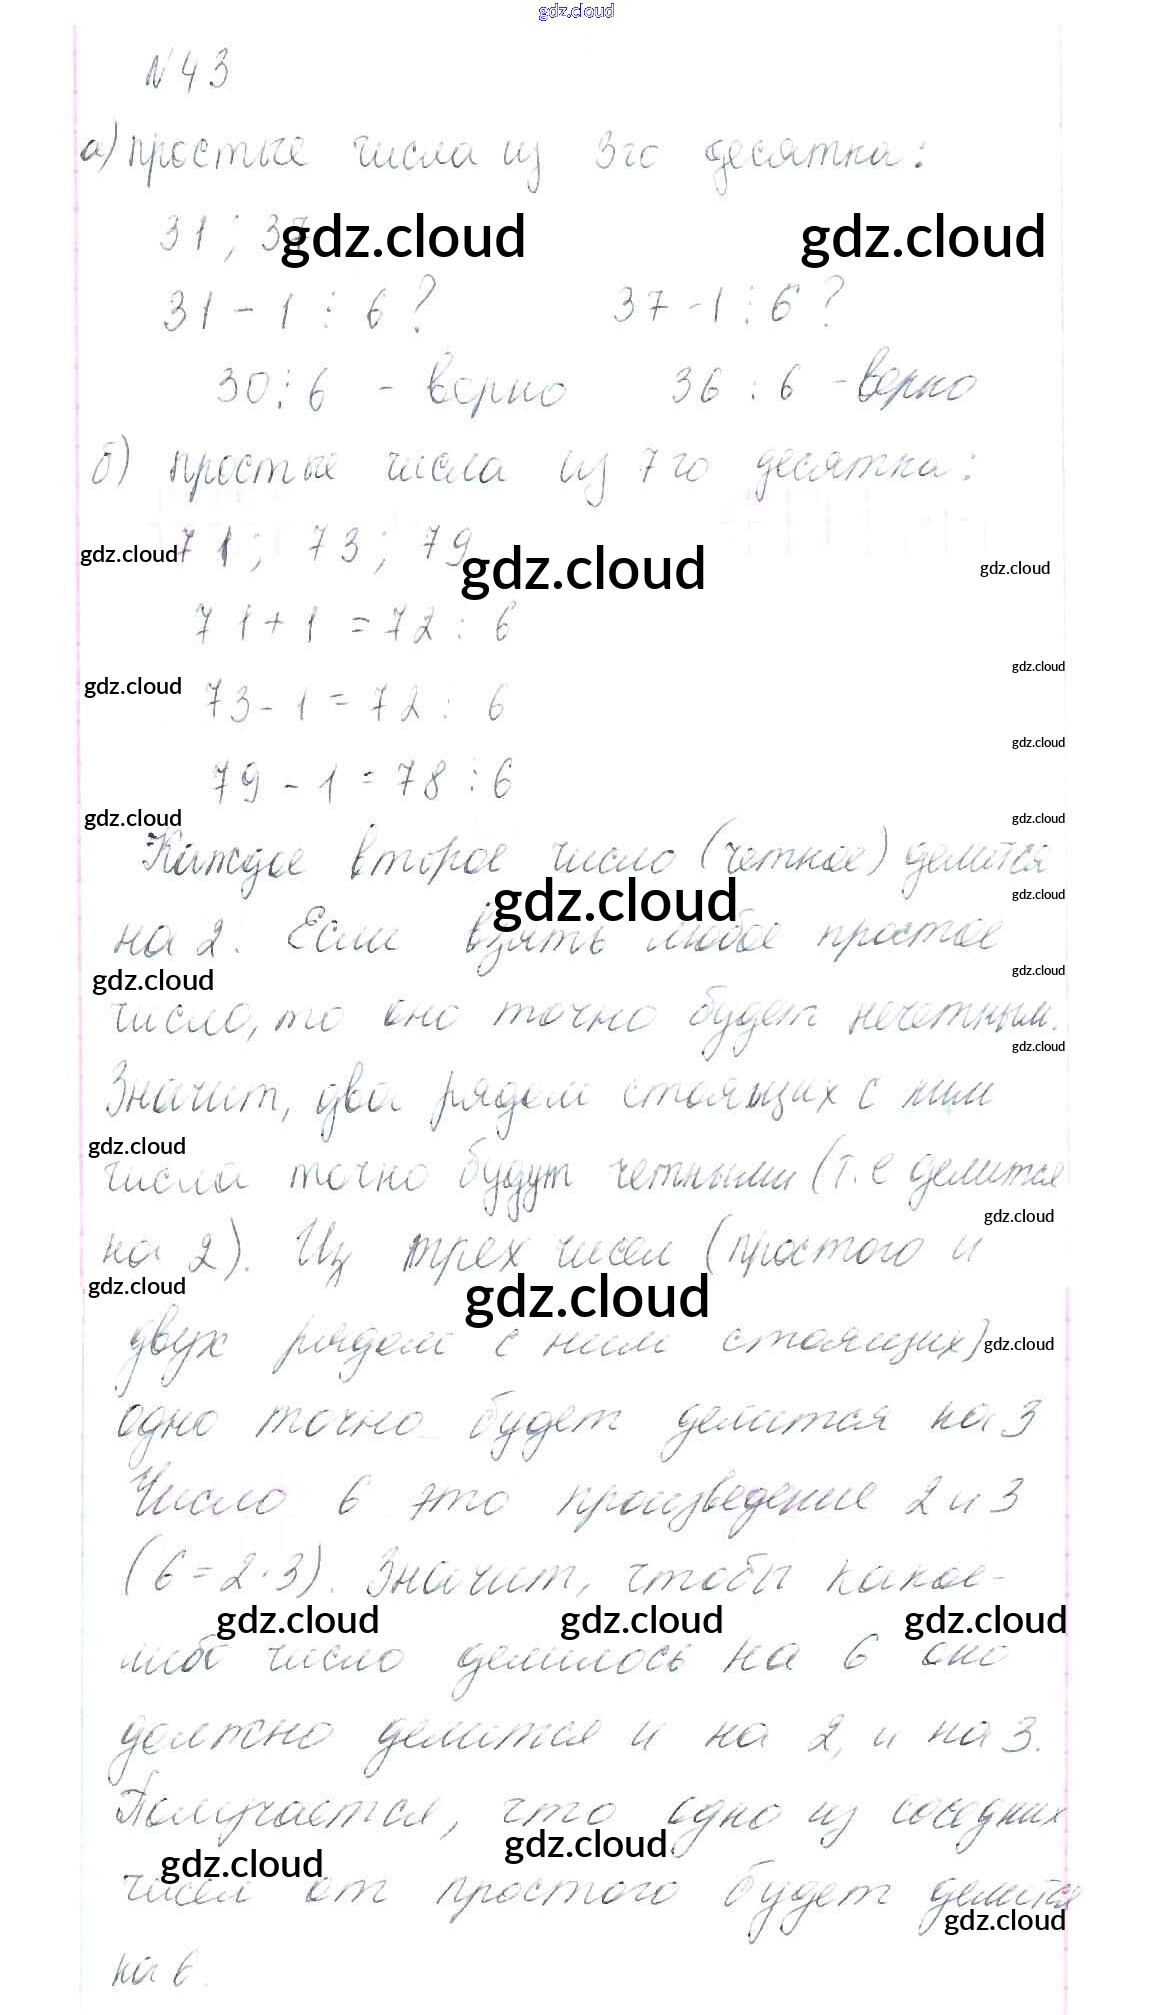 gdz.cloud
№43
а) простые числа из 3го десятка:
31; 37
gdz.cloud gdz.cloud
31 - 1 ⋮ 6 ? 37 - 1 ⋮ 6 ?
30 ⋮ 6 - верно 36 ⋮ 6 - верно
б) простые числа из 7го десятка:
71; 73; 79
gdz.cloud gdz.cloud gdz.cloud
71 + 1 = 72 ⋮ 6
gdz.cloud
gdz.cloud 73 - 1 = 72 ⋮ 6
gdz.cloud
79 - 1 = 78 ⋮ 6
gdz.cloud gdz.cloud
Каждое второе число (четное) делится
gdz.cloud gdz.cloud
на 2. Если взять любое простое
gdz.cloud gdz.cloud
число, то оно точно будет нечетным.
gdz.cloud
Значит, два рядом стоящих с ним
gdz.cloud
числа точно будут четными (т.е делится
gdz.cloud
на 2). Из трех чисел (простого и
gdz.cloud gdz.cloud
двух рядом с ним стоящих)
gdz.cloud
одно точно будет делится на 3
Число 6 это произведение 2 и 3
(6 = 2 · 3). Значит, чтобы какое-
gdz.cloud gdz.cloud gdz.cloud
либо число делилось на 6 оно
должно делится и на 2, и на 3.
Получается, что одно из соседних
gdz.cloud gdz.cloud
чисел от простого будет делится
gdz.cloud
на 6.